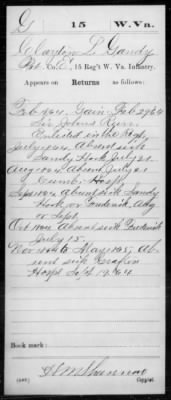 G | 15 | W. Va.
Clayton L. Gandy
Pvt., Co. E, 15 Reg't W. Va. Infantry.
Appears on
Returns as follows:
Feb 1864. Gain Feb 29 64
Sir Johns Run.
Enlisted in the Regt.
July 1864. Absent sick
Sandy Hook July 21.
Aug 1864 Absent July 21
Cumb. Hosp.
Sept 1864 Absent sick Sandy
Hook, or Frederick, Aug
or Sept.
Oct 1864. Absent sick Frederick
July 15.
Nov 1864 to May 1865, Ab
sent sick
Hospl Sept 19/64
Book mark:
Copyist.